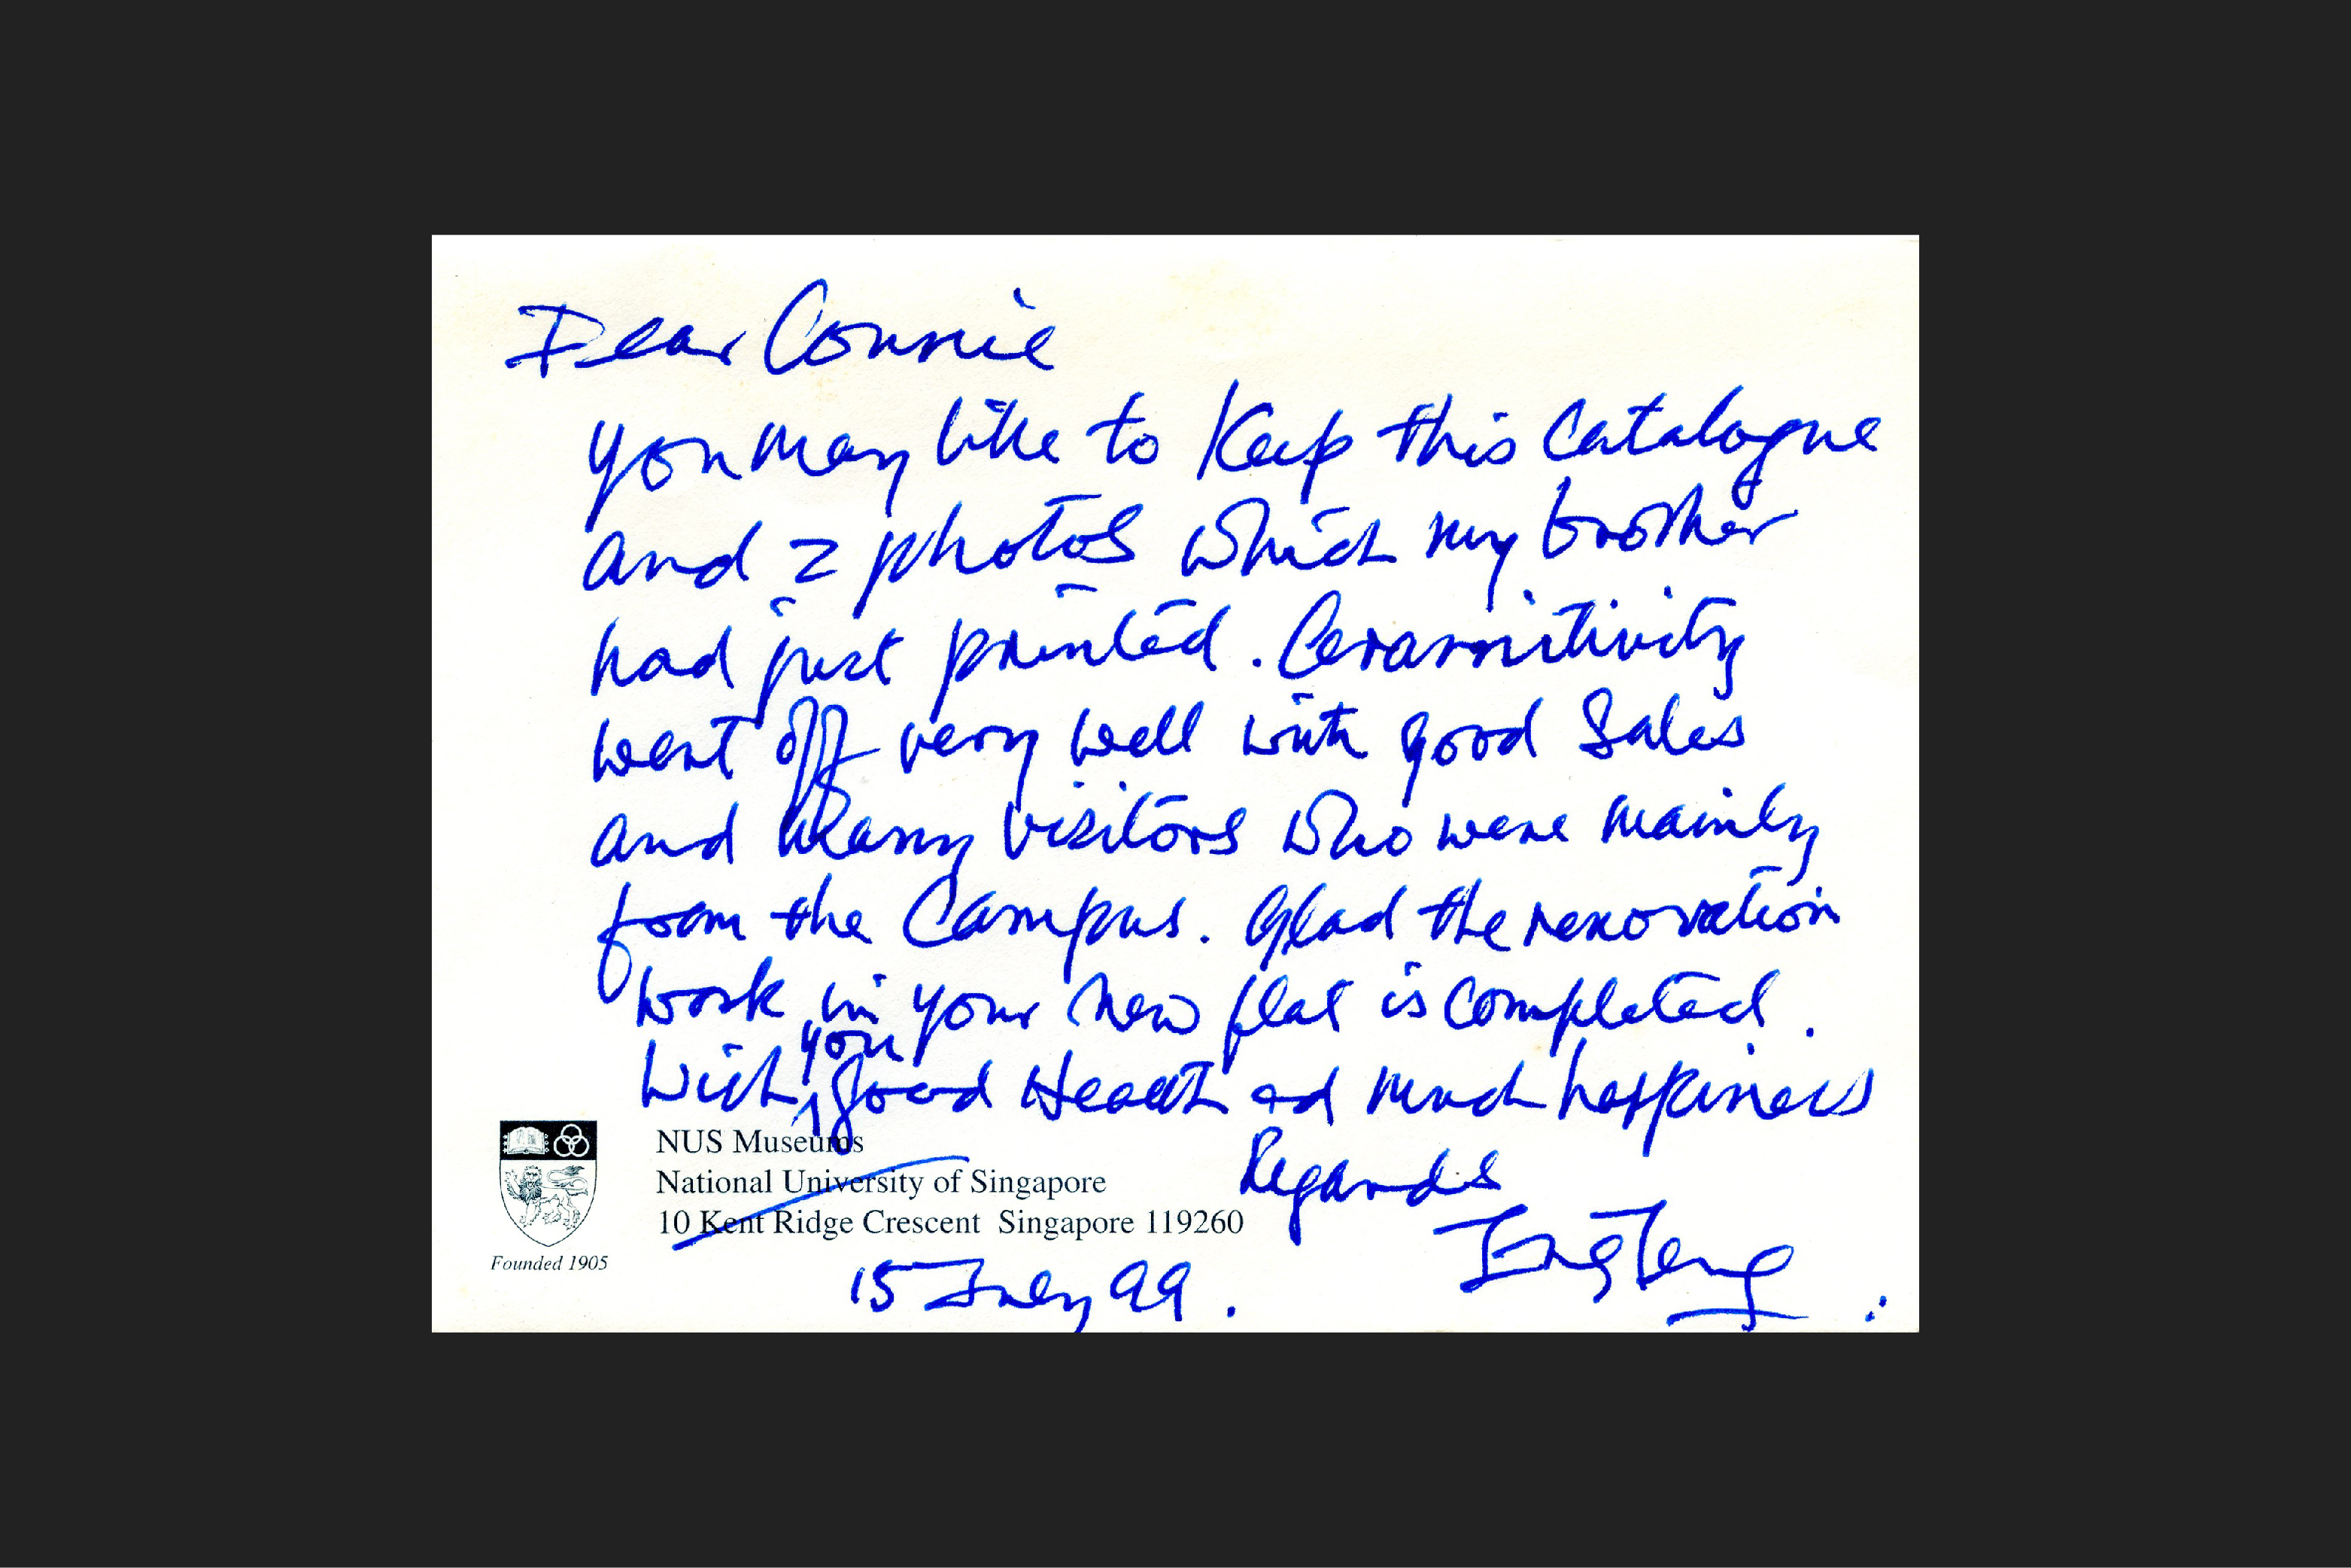 Dear Connie
you may like to keep this catalogue
and 2 photos which my brother
had just printed. Ceramitivity
went off very well with good sales
and many visitors who were mainly
from the Campus. Glad the renovation
work in your new flat is completed.
Wish you good Health and much happiness
Regards
Eng Teng
NUS Museums
National University of Singapore
10 Kent Ridge Crescent Singapore 119260
Founded 1905
15 July 99.